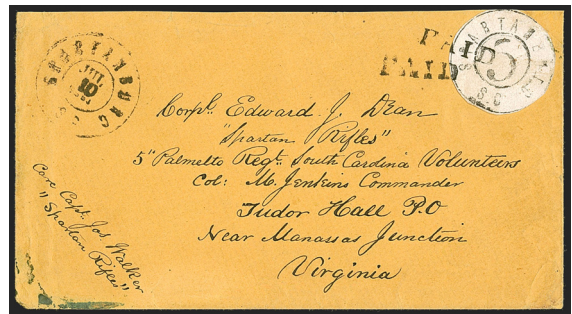 SPARTANBURG
S.C
JUL
10
PAID
PAID
SPARTANBURG
5
S.C
Corpl. Edward J. Dean
"Spartan Rifles"
5" Palmetto Regt. South Carolina Volunteers
Col: M. Jenkins Commander
Tudor Hall P.O
Near Manassas Junction
Virginia
Care Capt. Jos Walker
"Spartan Rifles"